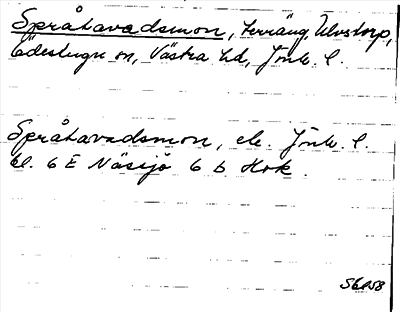 Språkavadsmon, terräng, Ulvstorp,
Ödestugu sn, Västra hd, Jönk. l.
Språkavadsmon, ek. Jönk. l.
bl. 6 E Nässjö 6 b Hok.